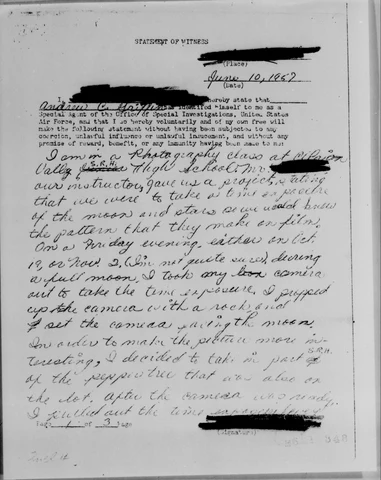 STATEMENT OF WITNESS
(Place)
June 10, 1967
(Date)
I, hereby state that
Andrew C. identified himself to me as a
Special Agent of the Office of Special Investigations, United States
Air Force, and that I do hereby voluntarily and of my own free will
make the following statement without having been subjected to any
coercion, unlawful influence or unlawful inducement, and without any
promise of reward, benefit, or any immunity having been made to me:
I am in a Photography class at
Valley S.R.H. High School. Mr.
our instructor, gave us a project, stating
that we were to take a time exposure
of the moon and stars so we would have
the pattern that they make on film.
On a Friday evening, either on Oct
19, or Nov 2, I'm not quite sure, during
a full moon, I took my camera
out to take the time exposure. I propped
up the camera with a rock, and
set the camera facing the moon.
In order to make the picture more in-
S.R.H.
teresting, I decided to take in part
of the pepper tree that was also on
the lot. After the camera was ready,
I pulled out the time
Page 1 of 3 Page
(Signature)